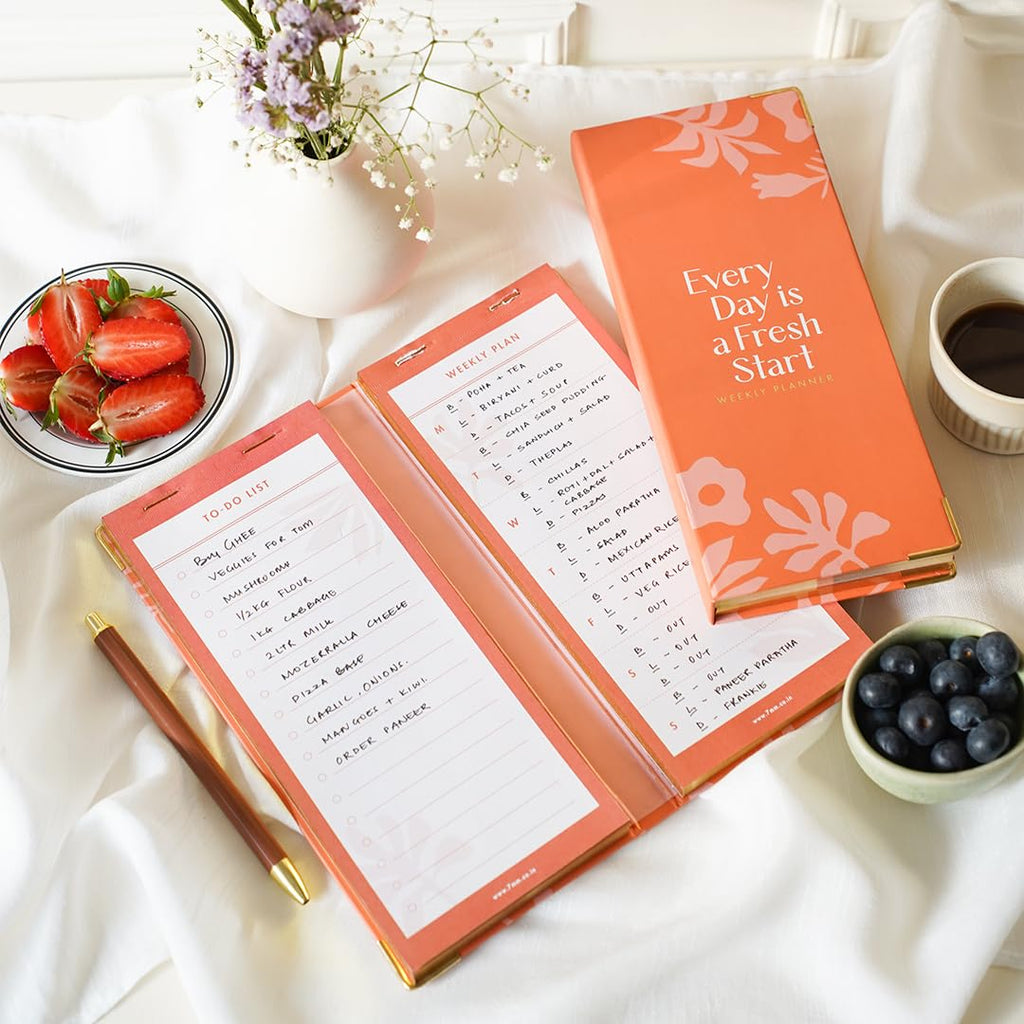 Every
Day is
a Fresh
Start
WEEKLY PLANNER
TO-DO LIST
BUY GHEE
VEGGIES FOR TOM
MUSHROOMS
1/2KG FLOUR
1KG CABBAGE
2LTR MILK
MOZERRALLA CHEESE
PIZZA BASE
GARLIC, ONIONS.
MANGOES + KIWI.
ORDER PANEER
www.7mm.co.in
WEEKLY PLAN
M B - POHA + TEA
L - BIRYANI + CURD
D - TACOS + SOUP
T B - CHIA SEED PUDDING
L - SANDWICH + SALAD
D - THEPLAS
W B - CHILLAS
L - ROTI + DAL + SALAD +
CABBAGE
D - PIZZAS
T B - ALOO PARATHA
L - SALAD
D - MEXICAN RICE
F B - UTTAPAMS
L - VEG RICE
D - OUT
S B - OUT
L - OUT
D - OUT
S B - OUT
L - PANEER PARATHA
D - FRANKIE
www.7mm.co.in